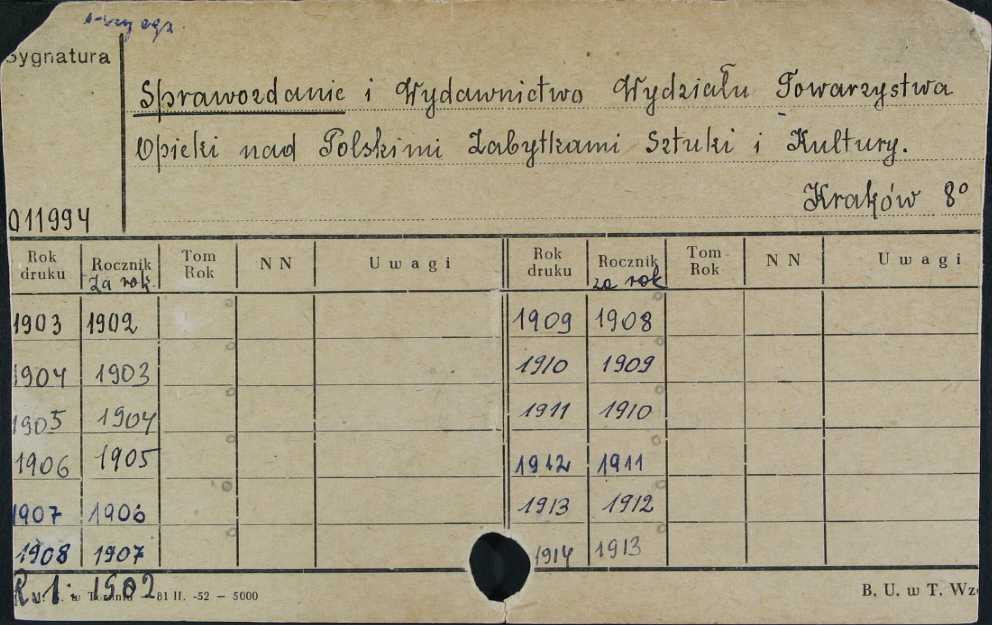 egz.
Sygnatura
Sprawozdanie i Wydawnictwo Wydziału Towarzystwa
Opieki nad Polskimi Zabytkami Sztuki i Kultury.
Kraków 8°
011994
Rok druku Rocznik za rok Tom Rok NN Uwagi Rok druku Rocznik za rok Tom Rok NN Uwagi
1903 1902 1909 1908
1904 1903 1910 1909
1905 1904 1911 1910
1906 1905 1912 1911
1907 1906 1913 1912
1908 1907 1914 1913
R. 1: 1902
w Toruniu 81 II. -52 – 5000 B. U. w T. Wz